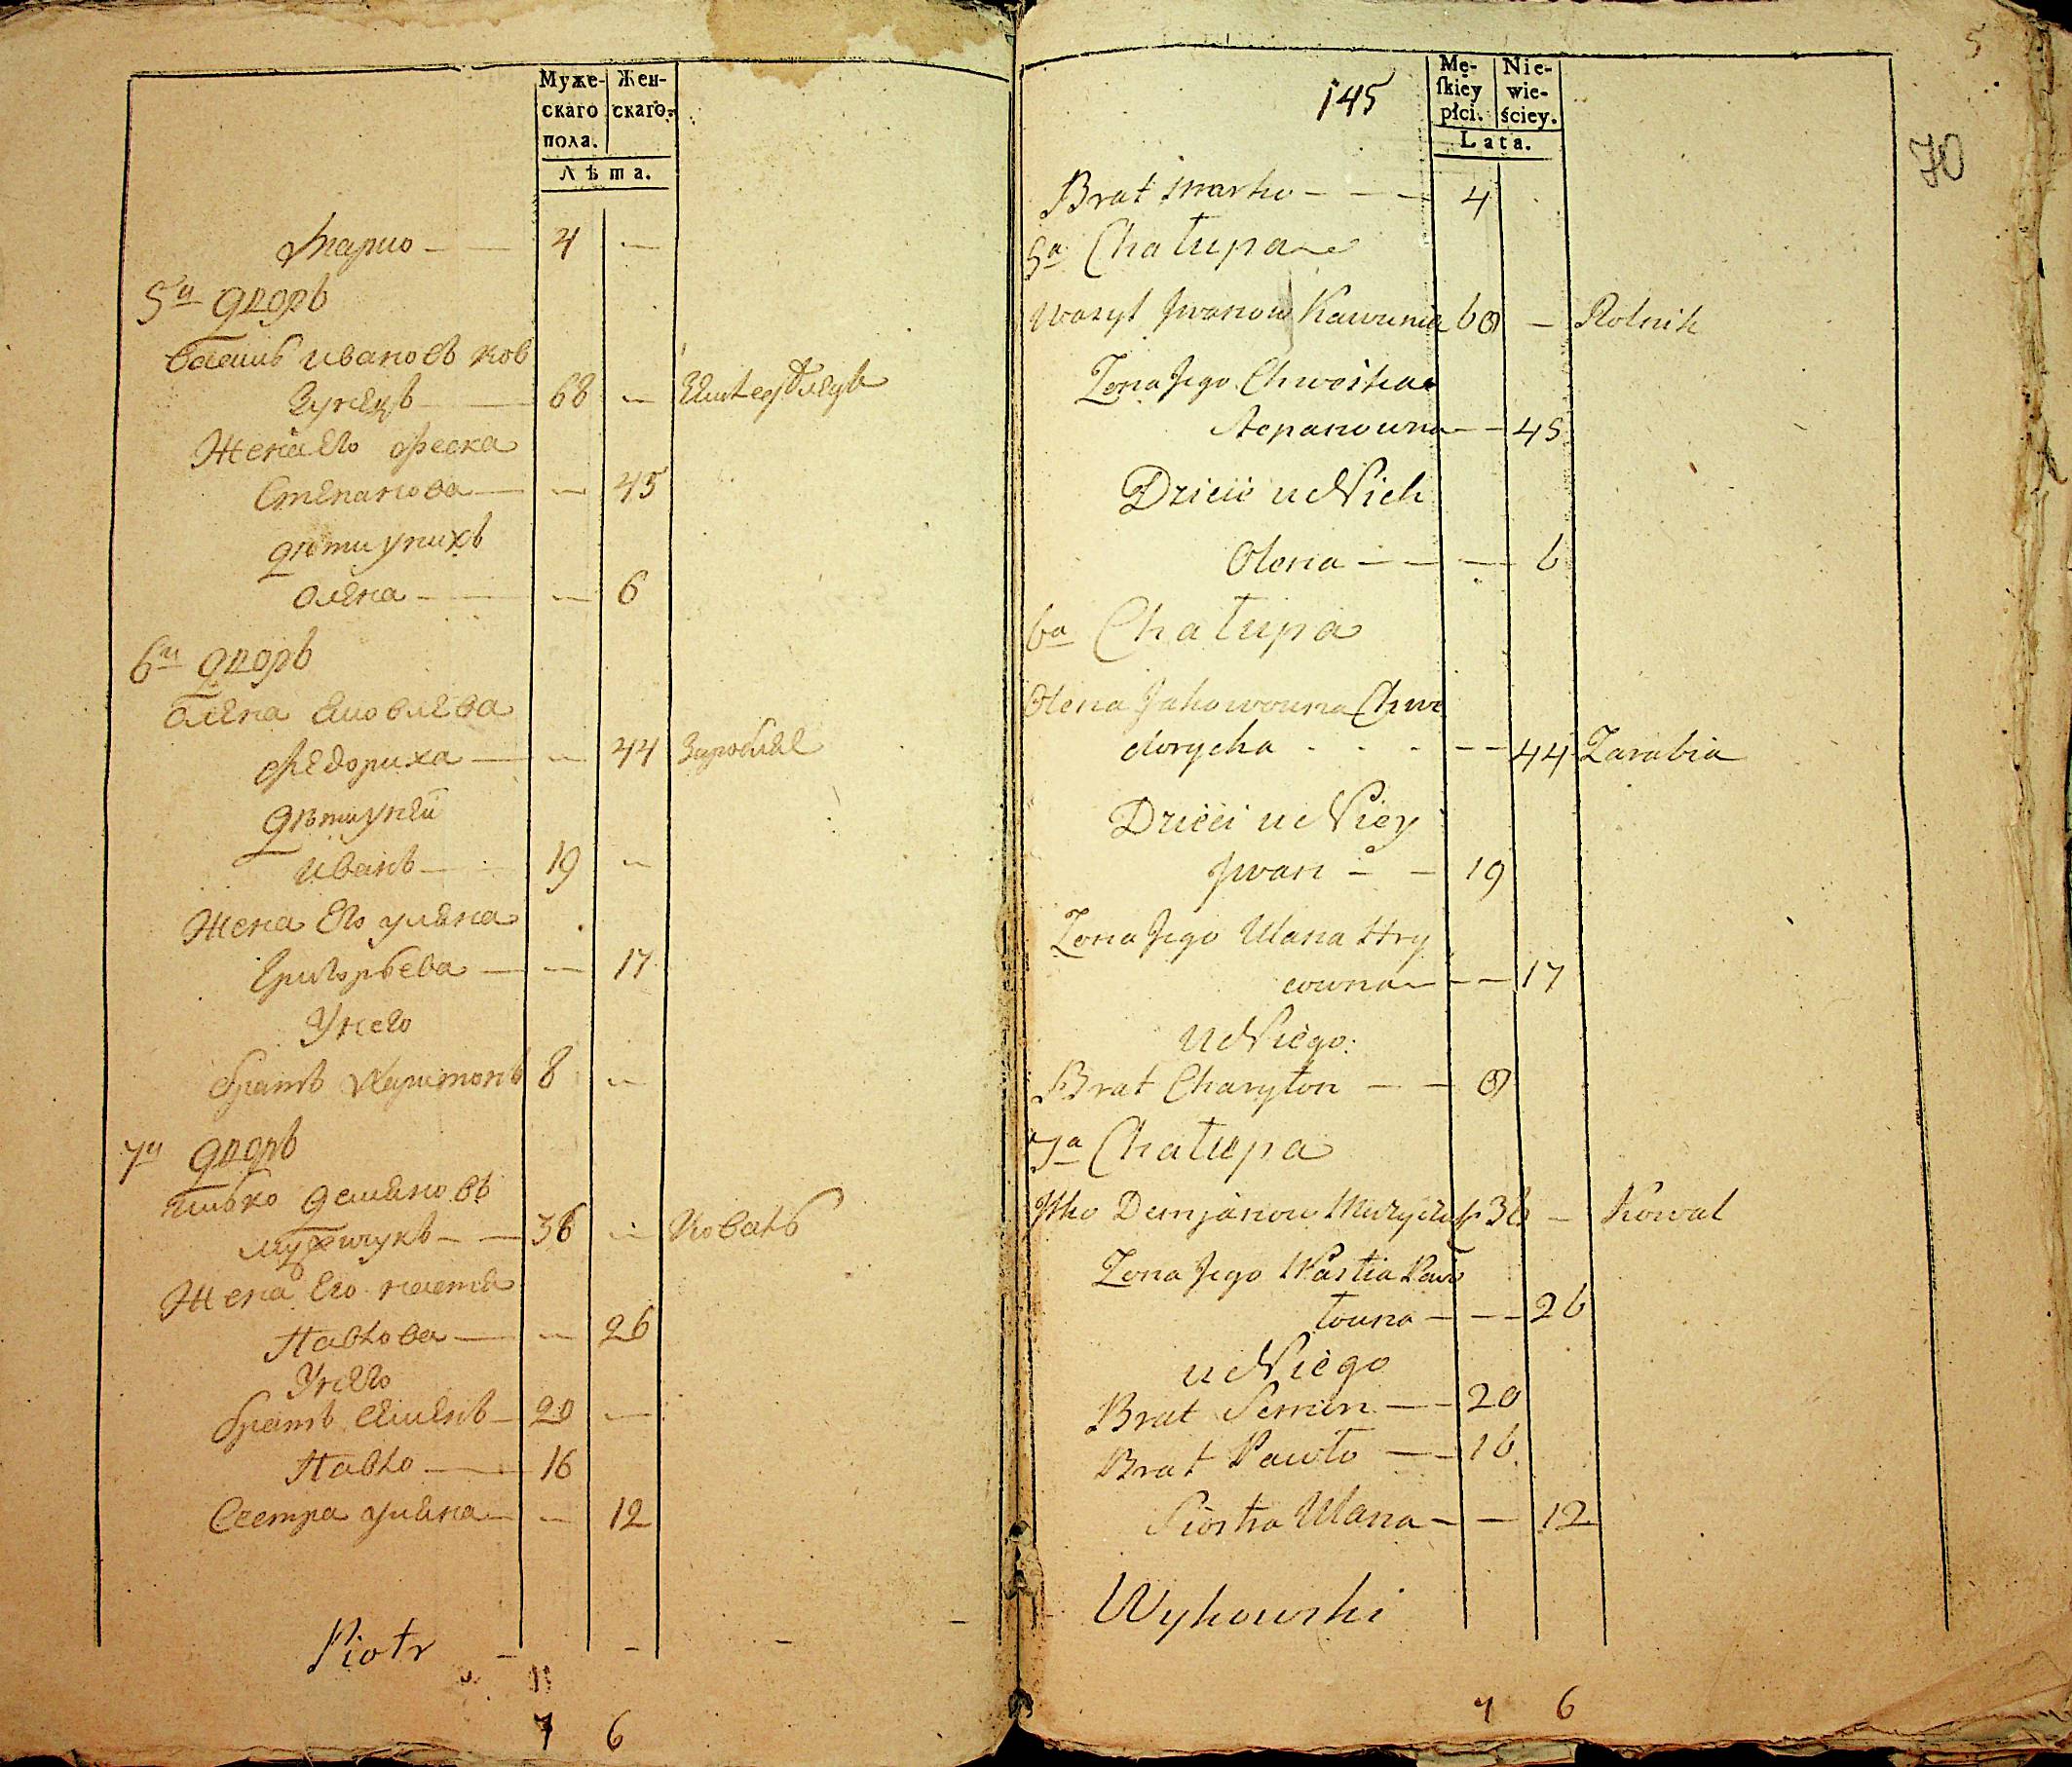 Муже-
скаго
пола.
Жен-
скаго.
Лѣта.
Марко — 4 —
5й дворъ
Василь Ивановъ Ков
68 —
Жена Его Феска
Степанова — — 45
Дѣти у нихъ
Олена — — 6
6й дворъ
Олена Яковлева
Федориха — — 44
Дѣти у ней
Иванъ — 19 —
Жена Его Уляна
Григорьева — — 17
У него
братъ Харитонъ 8 —
7й дворъ
Илько Демяновъ
36 — Коваль
Жена Его Настя
Павлова — — 26
У него
братъ Семенъ — 20 —
Павло — 16
Сестра Уляна — — 12
Piotr
7 6
5
70
145
Mę-
ſkiey
płci.
Nie-
wie-
ściey.
Lata.
Brat Marko — — — 4
5a Chałupa
Wasyl Jwanow Kawunia 68 — Rolnik
Zona Jego Chweśka
Stepanowna — — 45
Dzieci u Nich
Olena — — — — 6
6a Chałupa
Olena Jakowowna Chwe
dorycha - - - — — 44 Zarabia
Dzieci u Niey
Jwan — — 19
Zona Jego Ulana Hry
cowna — — 17
u Niego:
Brat Charyton — — 8
7a Chałupa
Jlko Demjanow Muzyczuk 36 — Kowal
Zona Jego Nastia Paw
łowna — — — 26
u Niego
Brat Semen — — 20
Brat Pawło — — 16
Siostra Ulana — — 12
Wykowski
7 6